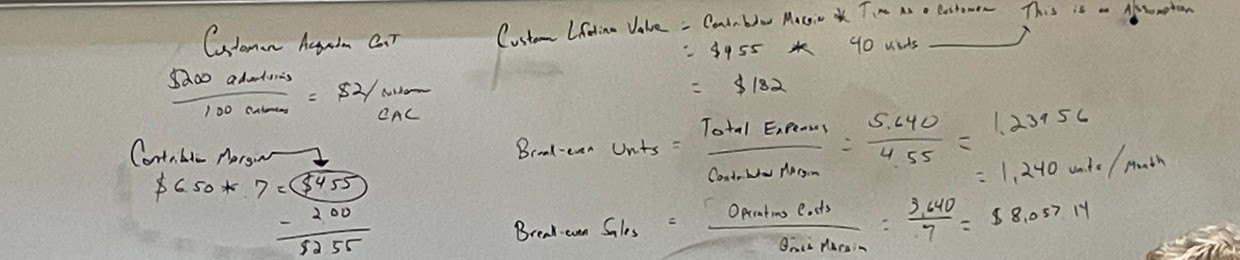 Customer Acquisition Cost
$200 advertising
100 customers
= $2/customer
CAC
Contribution Margin
$6.50 * .7 = $4.55
- 2.00
$2.55
Customer Lifetime Value = Contribution Margin * Time As a Customer This is an Assumption
= $4.55 * 40 visits
= $182
Break-even Units = Total Expenses / Contribution Margin = 5,640 / 4.55 = 1,239.56
= 1,240 units/Month
Break-even Sales = Operating Costs / Gross Margin = 5,640 / .7 = $8,057.14